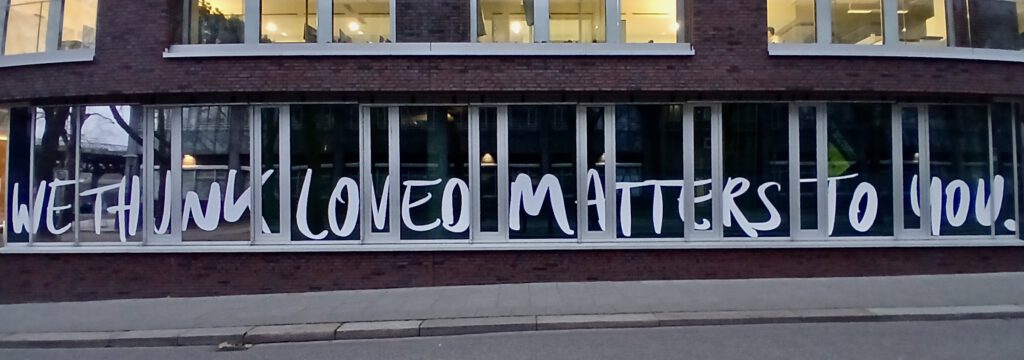 WE THINK LOVED MATTERS TO YOU.